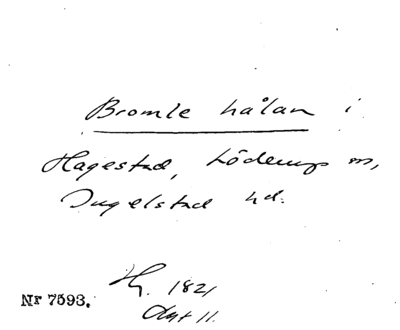 Bromle hålan i
Hagestad, Löderups sn,
Ingelstad hd.
Hg. 1821
Akt 11.
Nr 7593.